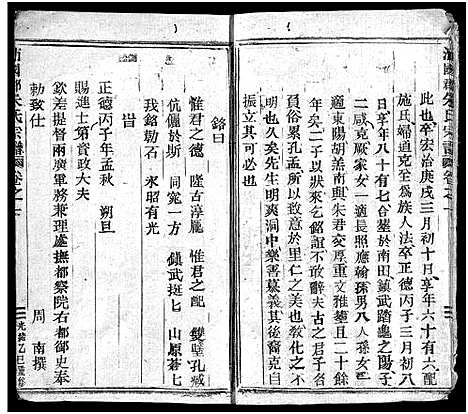 沛國郡朱氏宗譜圖卷之一
此也卒宏治庚戌三月初十日享年六十有六配
施氏婦道克至為族人法卒正德丙子三月初八
日享年八十有七卜是年合墓於南田鎮武踏龜之陽子
二咸克厥家女一適長照應翰孫男八人孫女三
適東陽胡盖南與朱君交厚重文雅塾且二十餘
年矣二子以狀來乞銘誼不敢辭夫古之君子名
不出閭累孔孟所以有里仁之美也敎化之不
明也久矣先生明爽洞中樂善慕義其後裔克自
振立其可必也
銘曰
惟君之德　隆古淳龐　惟君之配　雙璧孔臧
伉儷於斯　同窀一方　鎮武挺匕　山原蒼匕
我銘勒石　永昭有光
旹
正德丙子年孟秋　朔旦
賜進士第資政大夫
欽差提督兩廣軍務兼理處撫都察院右都御史奉
勅致仕　周　南撰
沛國郡朱氏宗譜圖卷之一
光緒乙巳重修